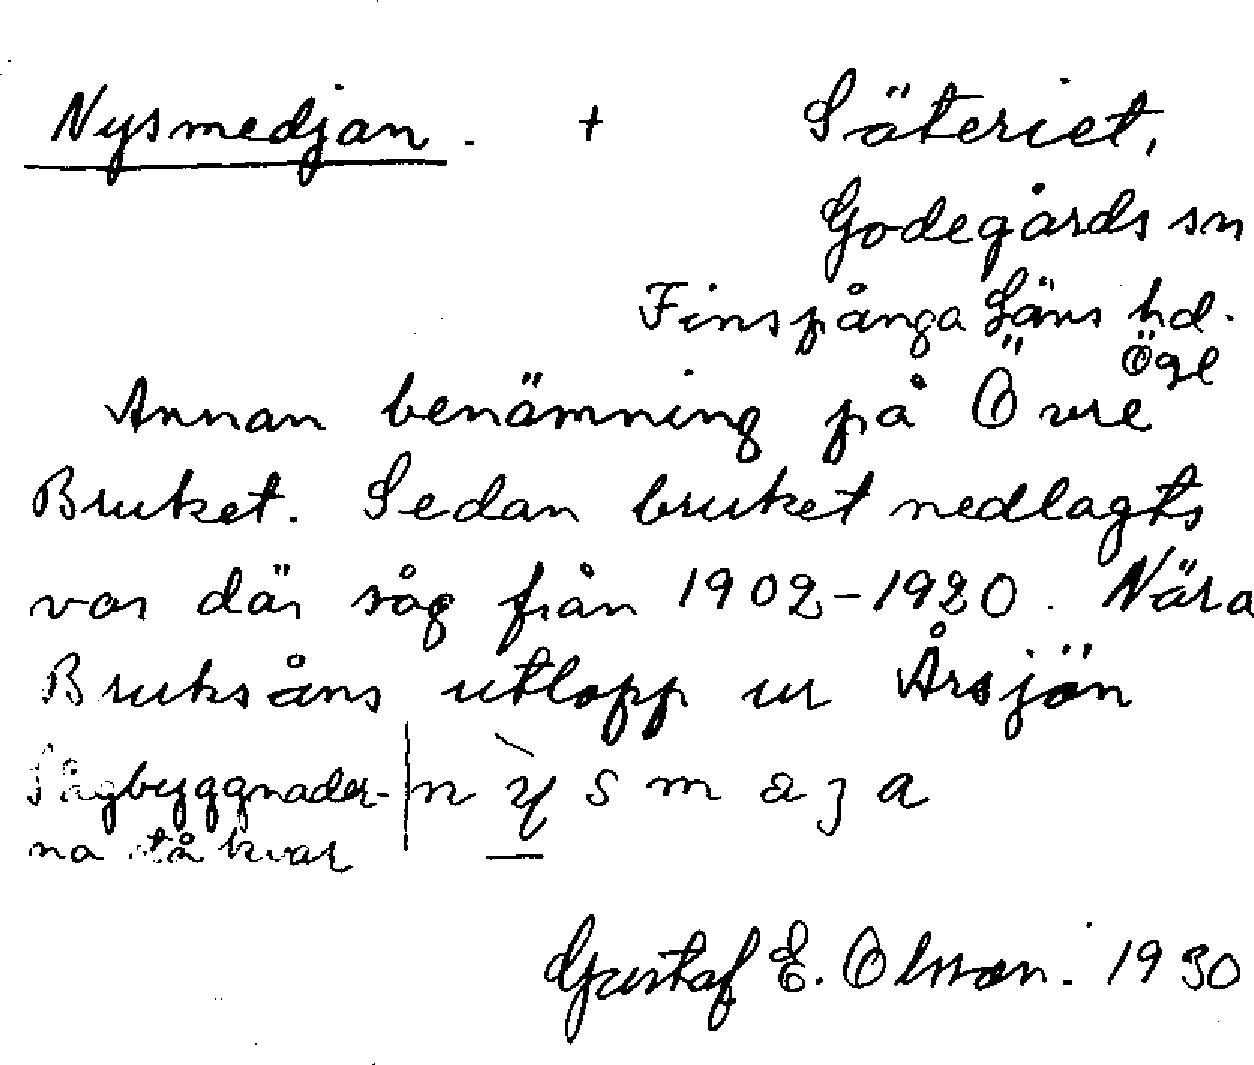 Nysmedjan. + Säteriet,
Godegårds sn
Finspånga Läns hd.
Ögl
Annan benämning på Övre
Bruket. Sedan bruket nedlagts
var där såg från 1902-1920. Nära
Bruksåns utlopp ur Årsjön
Sågbyggnader- | nỳsmaja
na stå kvar
Gustaf E. Olsson. 1930